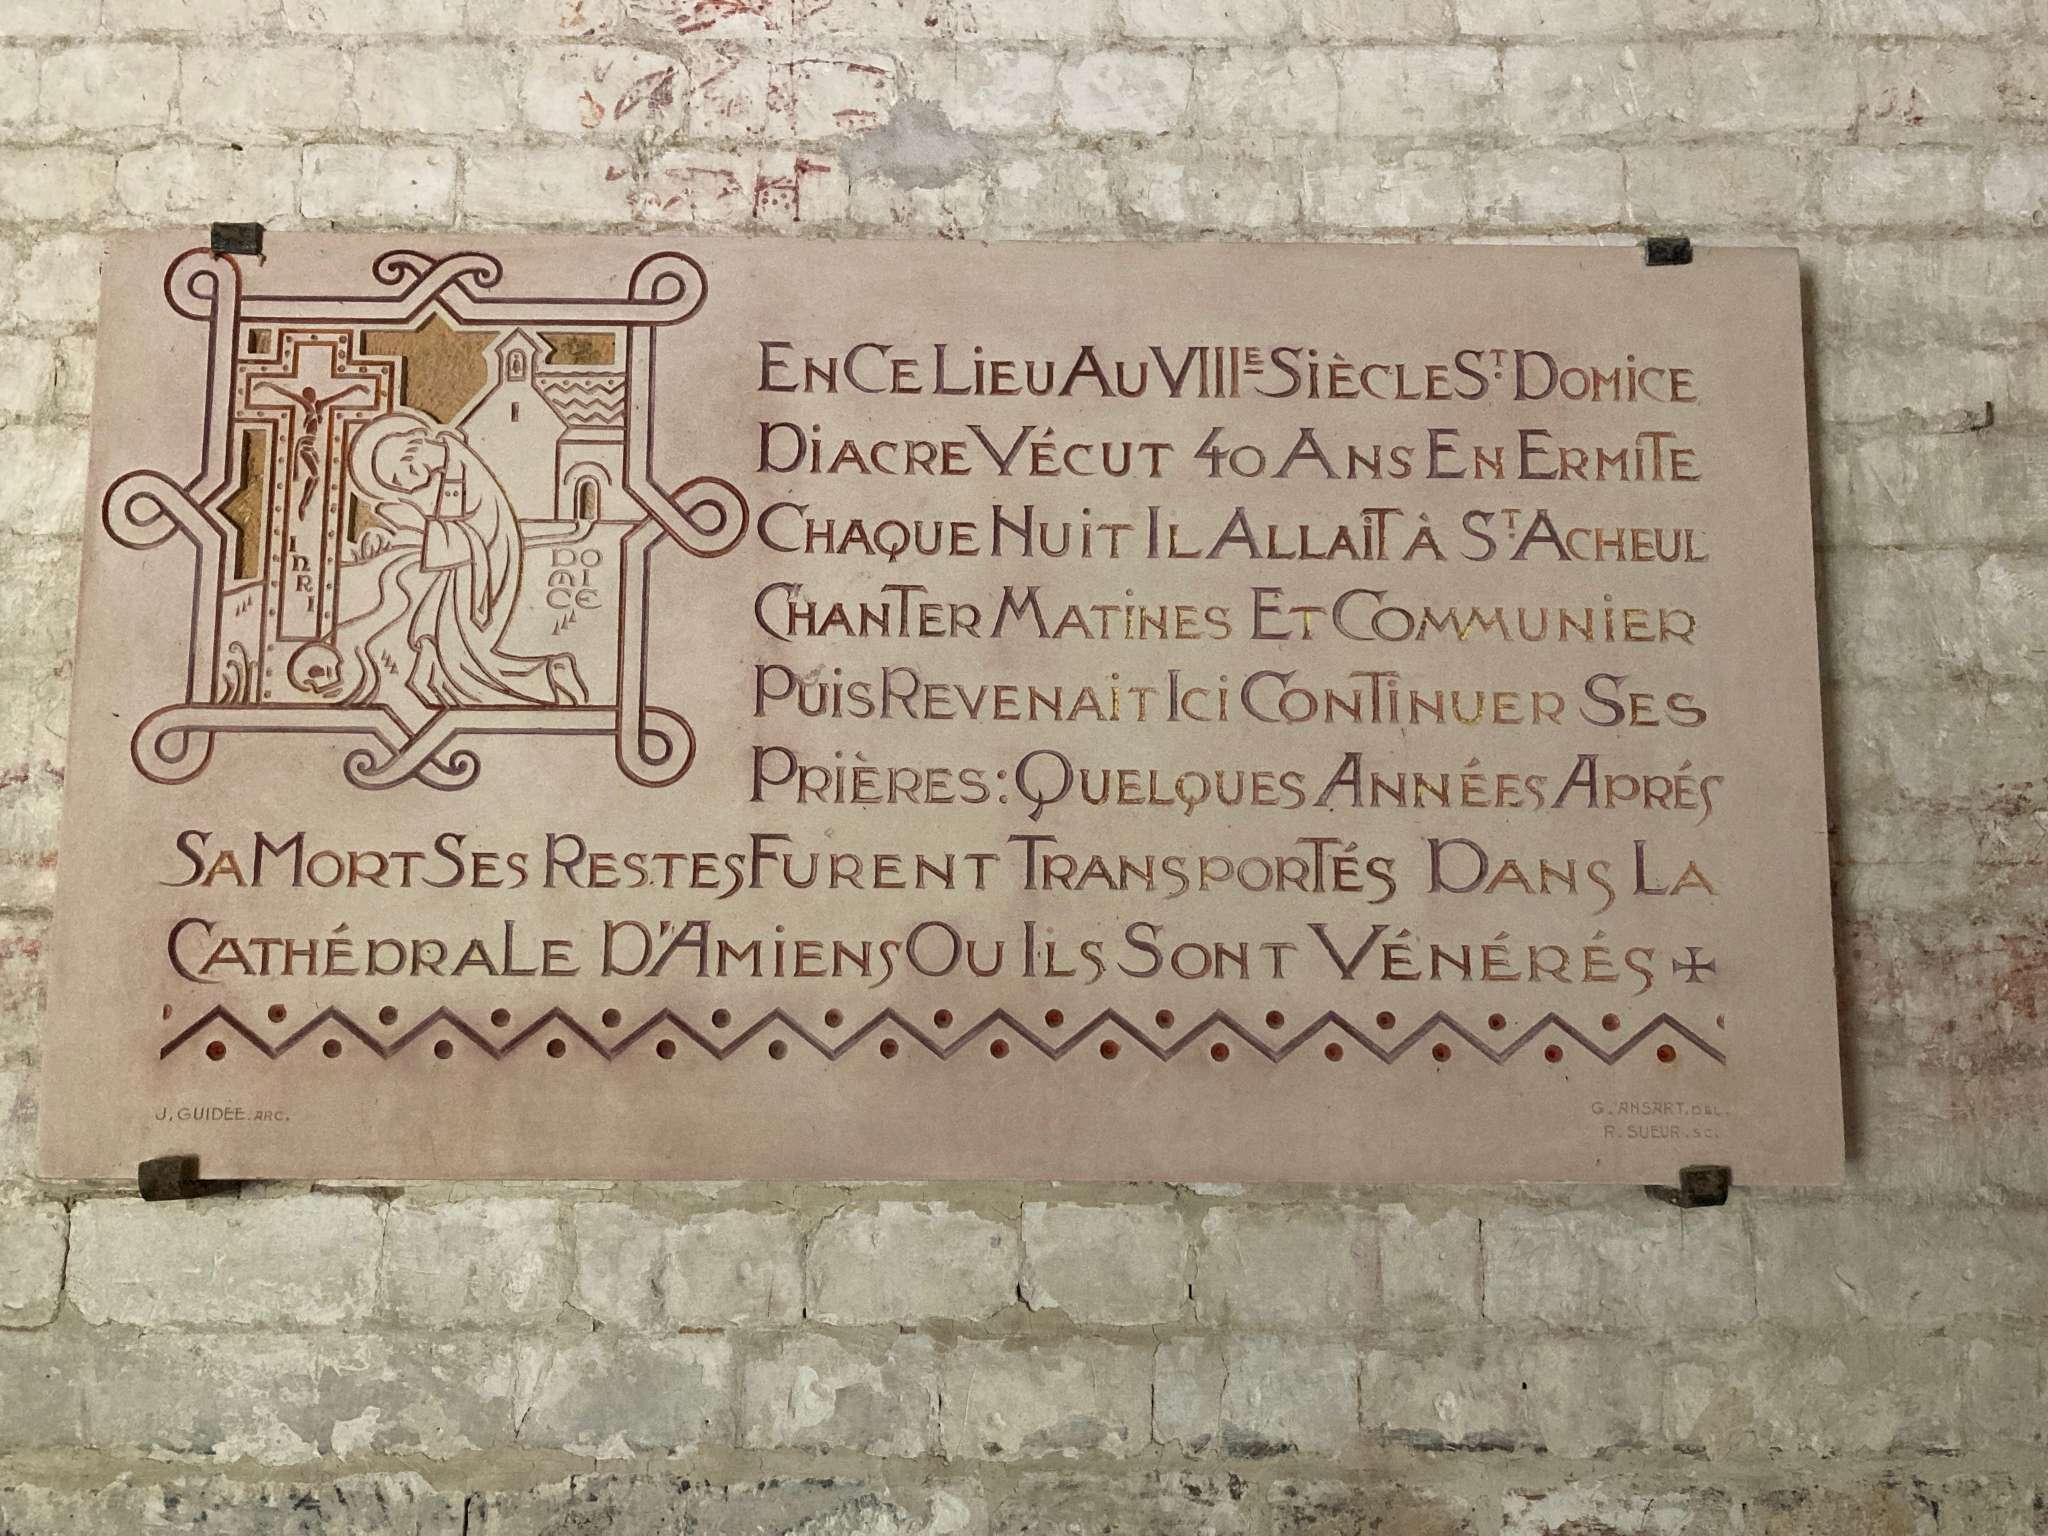 En Ce Lieu Au VIIIE Siècle ST. Domice
Diacre Vécut 40 Ans En Ermite
Chaque Nuit Il Allait à ST. Acheul
Chanter Matines Et Communier
Puis Revenait Ici Continuer Ses
Prières : Quelques Années Aprés
Sa Mort Ses Restes Furent Transportés Dans La
Cathédrale D'Amiens Ou Ils Sont Vénérés +
INRI
DOMICE
J. GUIDÉE. ARC.
G. ANSART. DEL.
R. SUEUR. SC.